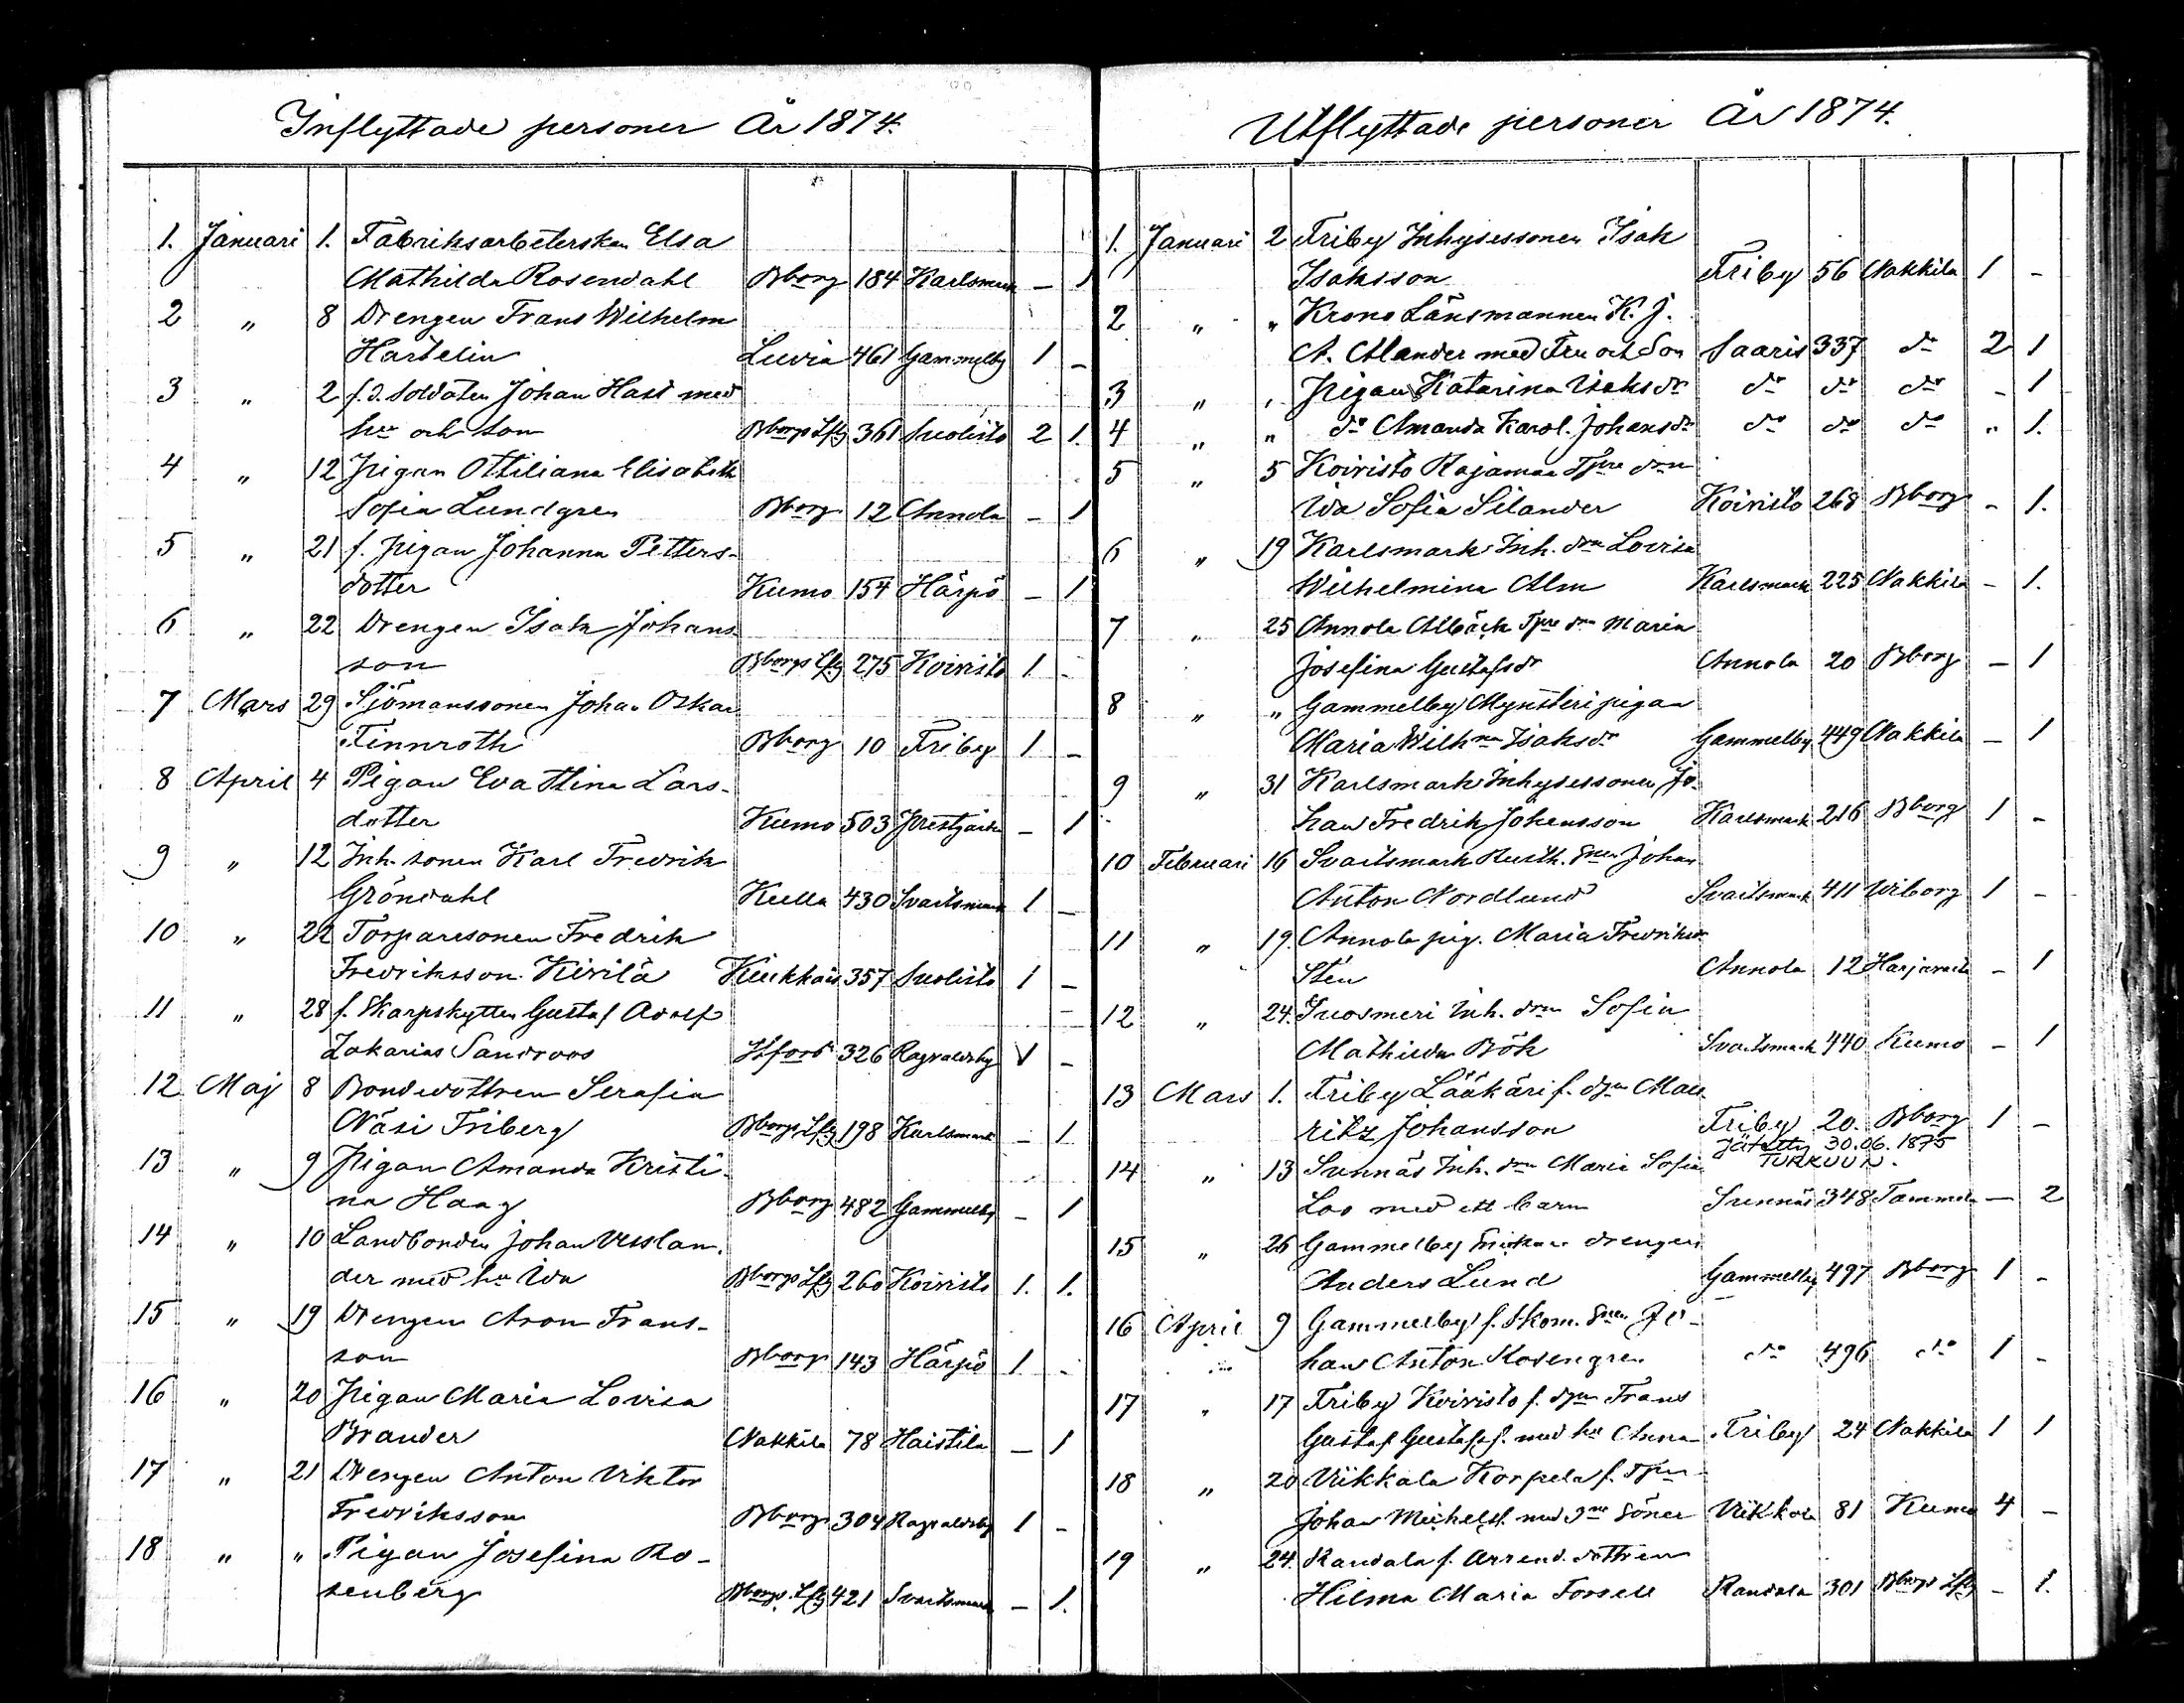 Inflyttade personer År 1874.
1. Januari 1. Fabriksarbeterskan Elsa
Mathilda Rosendahl Bborg 184 Karlsmark – 1
2 „ 8 Drengen Frans Wilhelm
Hartelin Luvia 461 Gammelby 1 –
3 „ 2 f.d. Soldaten Johan Hast med
hu och son Bborgs Lfg 361 Suolisto 2 1.
4 „ 12 Pigan Ottiliana Elisabeth
Sofia Lundgren Bborg 12 Annola – 1
5 „ 21 f. Pigan Johanna Petters-
dotter Kumo 154 Härpö – 1
6 „ 22 Drengen Isak Johans-
son Bborgs Lfg 275 Koivisto 1 -
7 Mars 29 Sjömanssonen Johan Oskar
Finnroth Bborg 10 Friby 1 –
8 April 4 Pigan Eva Stina Lars-
dotter Kumo 503 Prestgården – 1
9 „ 12 Inh. sonen Karl Fredrik
Gröndahl Kulla 430 Svartsmark 1 –
10 „ 22 Torparesonen Fredrik
Fredriksson Kivilä Kiukkais 357 Suolisto 1 –
11 „ 28 f. Skarpskytten Gustaf Adolf
Zakarias Sandroos Hfors 326 Ragvaldsby 1 –
12 Maj 8 Bondedottren Serafia
Näsi Friberg Bborgs Lfg 198 Karlsmark – 1
13 „ 9 Pigan Amanda Kristi-
na Haag Bborg 482 Gammelby – 1
14 „ 10 Landbonden Johan Wesslan-
der med hu Ida Bborgs Lfg 260 Koivisto 1. 1.
15 „ 19 Drengen Aron Frans-
son Bborg 143 Härpö 1 -
16 „ 20 Pigan Maria Lovisa
Brander Nakkila 78 Haistila – 1
17 „ 21 Drengen Anton Viktor
Fredriksson Bborg 304 Ragvaldsby 1 -
18 „ „ Pigan Josefina Ro-
senberg Bborgs Lfg 421 Svartsmark – 1.
Utflyttade personer År 1874.
1. Januari 2 Friby Inhysessonen Isak
Isaksson Friby 56 Nakkila 1 -
2 „ „ Krono Länsmannen K. J.
A. Alander med Fru och Son Saaris 337 do 2 1
3 „ „ Pigan Katarina Isaksdr do do do - 1
4 „ „ do Amanda Karol. Johansdr do do do „ 1.
5 „ 5 Koivisto Rajamaa Tpre drn
Ida Sofia Silander Koivisto 268 Bborg - 1.
6 „ 19 Karlsmark Inh. drn Lovisa
Wilhelmina Alm Karlsmark 225 Nakkila – 1.
7 „ 25 Annola Albäck Tpre drn Maria
Josefina Gustafsdr Annola 20 Bborg – 1
8 „ „ Gammelby Mynsteri pigan
Maria Wilhna Isaksdr Gammelby 449 Nakkila – 1
9 „ 31 Karlsmark Inhysessonen Jo-
han Fredrik Johansson Karlsmark 216 Bborg 1 -
10 Februari 16 Svartsmark Rusth. Snen Johan
Anton Nordlund Svartsmark 411 Wiborg 1 -
11 „ 19. Annola pig. Maria Fredrika
Sten Annola 12 Harjavalta – 1
12 „ 24. Suosmeri Inh. drn Sofia
Mathilda Bök Svartsmark 440 Kumo – 1
13 Mars 1. Friby Lääkäri f. dgn Mau-
ritz Johansson Friby 20. Bborg 1 –
Jätetty 30.06.1875
TURKUUN.
14 „ 13 Sunnäs Inh. drn Maria Sofia
Loo med ett barn Sunnäs 348 Tammela — 2
15 „ 26 Gammelby drengen
Anders Lund Gammelby 497 Bborg 1 -
16 April 9 Gammelby f. Skom. Snen Jo-
han Anton Rosengren do 496 do 1 -
17 „ 17 Friby Koivisto f. dgn Frans
Gustaf Gustafss. med hu Anna Friby 24 Nakkila 1 1
18 „ 20 Viikkala Korpela f. Tpn
Johan Michelss. med 3ne Söner Viikkala 81 Kumo 4 –
19 „ 24. Randala f. Arrend. dottren
Hilma Maria Forsell Randala 301 Bborgs Lfg – 1.